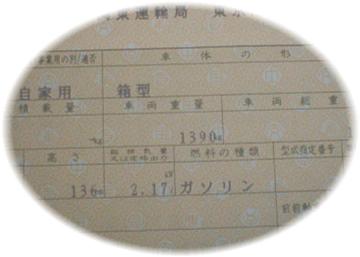 東運輸局 東京
事業用の別/適否 車体の形
自家用 箱型
積載量 車両重量 車両総重
kg 1390kg
高さ 総排気量又は定格出力 燃料の種類 型式指定番号
136cm 2.17 ガソリン
前前軸